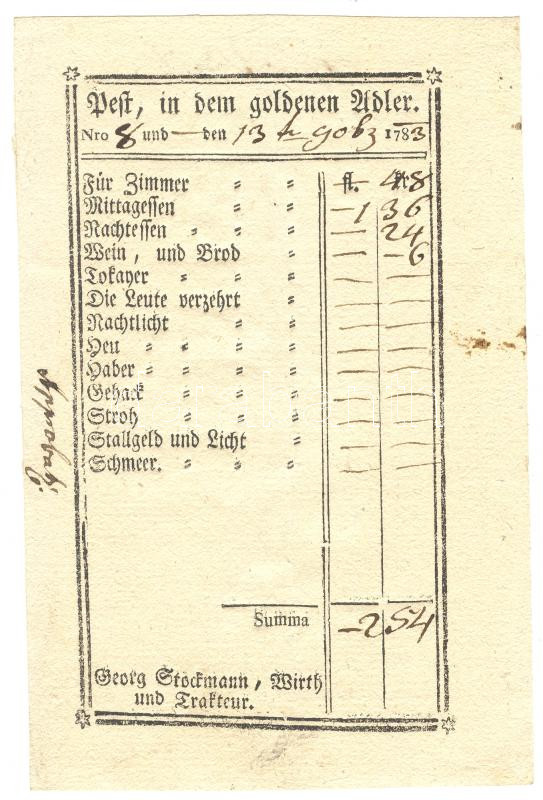 Pest, in dem goldenen Adler.
Nro 8 und — den 13 9obr 1783
fl. kr
Für Zimmer " " — 48
Mittagessen " " — 1 36
Nachtessen " " " — 24
Wein, und Brod " — — 6
Tokayer " " " — —
Die Leute verzehrt " — —
Nachtlicht " " — —
Heu " " " " — —
Haber " " " " — —
Gehack " " " — —
Stroh " " " — —
Stallgeld und Licht " — —
Schmeer. " " " — —
Summa — 2 54
Georg Stöckmann, Wirth
und Trakteur.